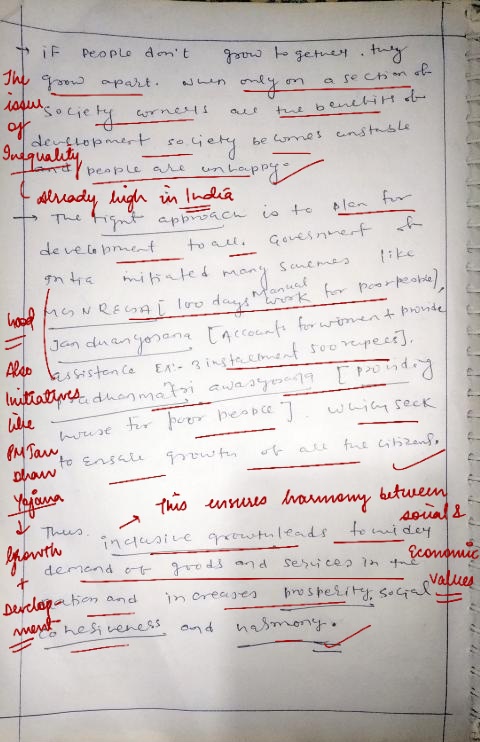 → if people don't grow together. they
The issue of Inequality
grow apart. when only on a section of
society corners all the benefits of
development society becomes unstable
and people are unhappy.
Already high in India
→ The right approach is to plan for
development to all. Government of
India initiated many schemes like
MGNREGA [100 days Manual work for poor people],
Good
Jandhanyojana [Accounts for women & provide
assistance Ex:- 3 installment 500 rupees].
Also Initiatives like PM Jan Dhan Yojana
↓
Growth + Development
pradhanmatri awasyojana [providing
house for poor people]. which seek
to ensure growth of all the citizens.
→ This ensures harmony between social & Economic values
Thus. inclusive growth leads to
demand of goods and services in the
nation and increases prosperity, social
cohesiveness and harmony.